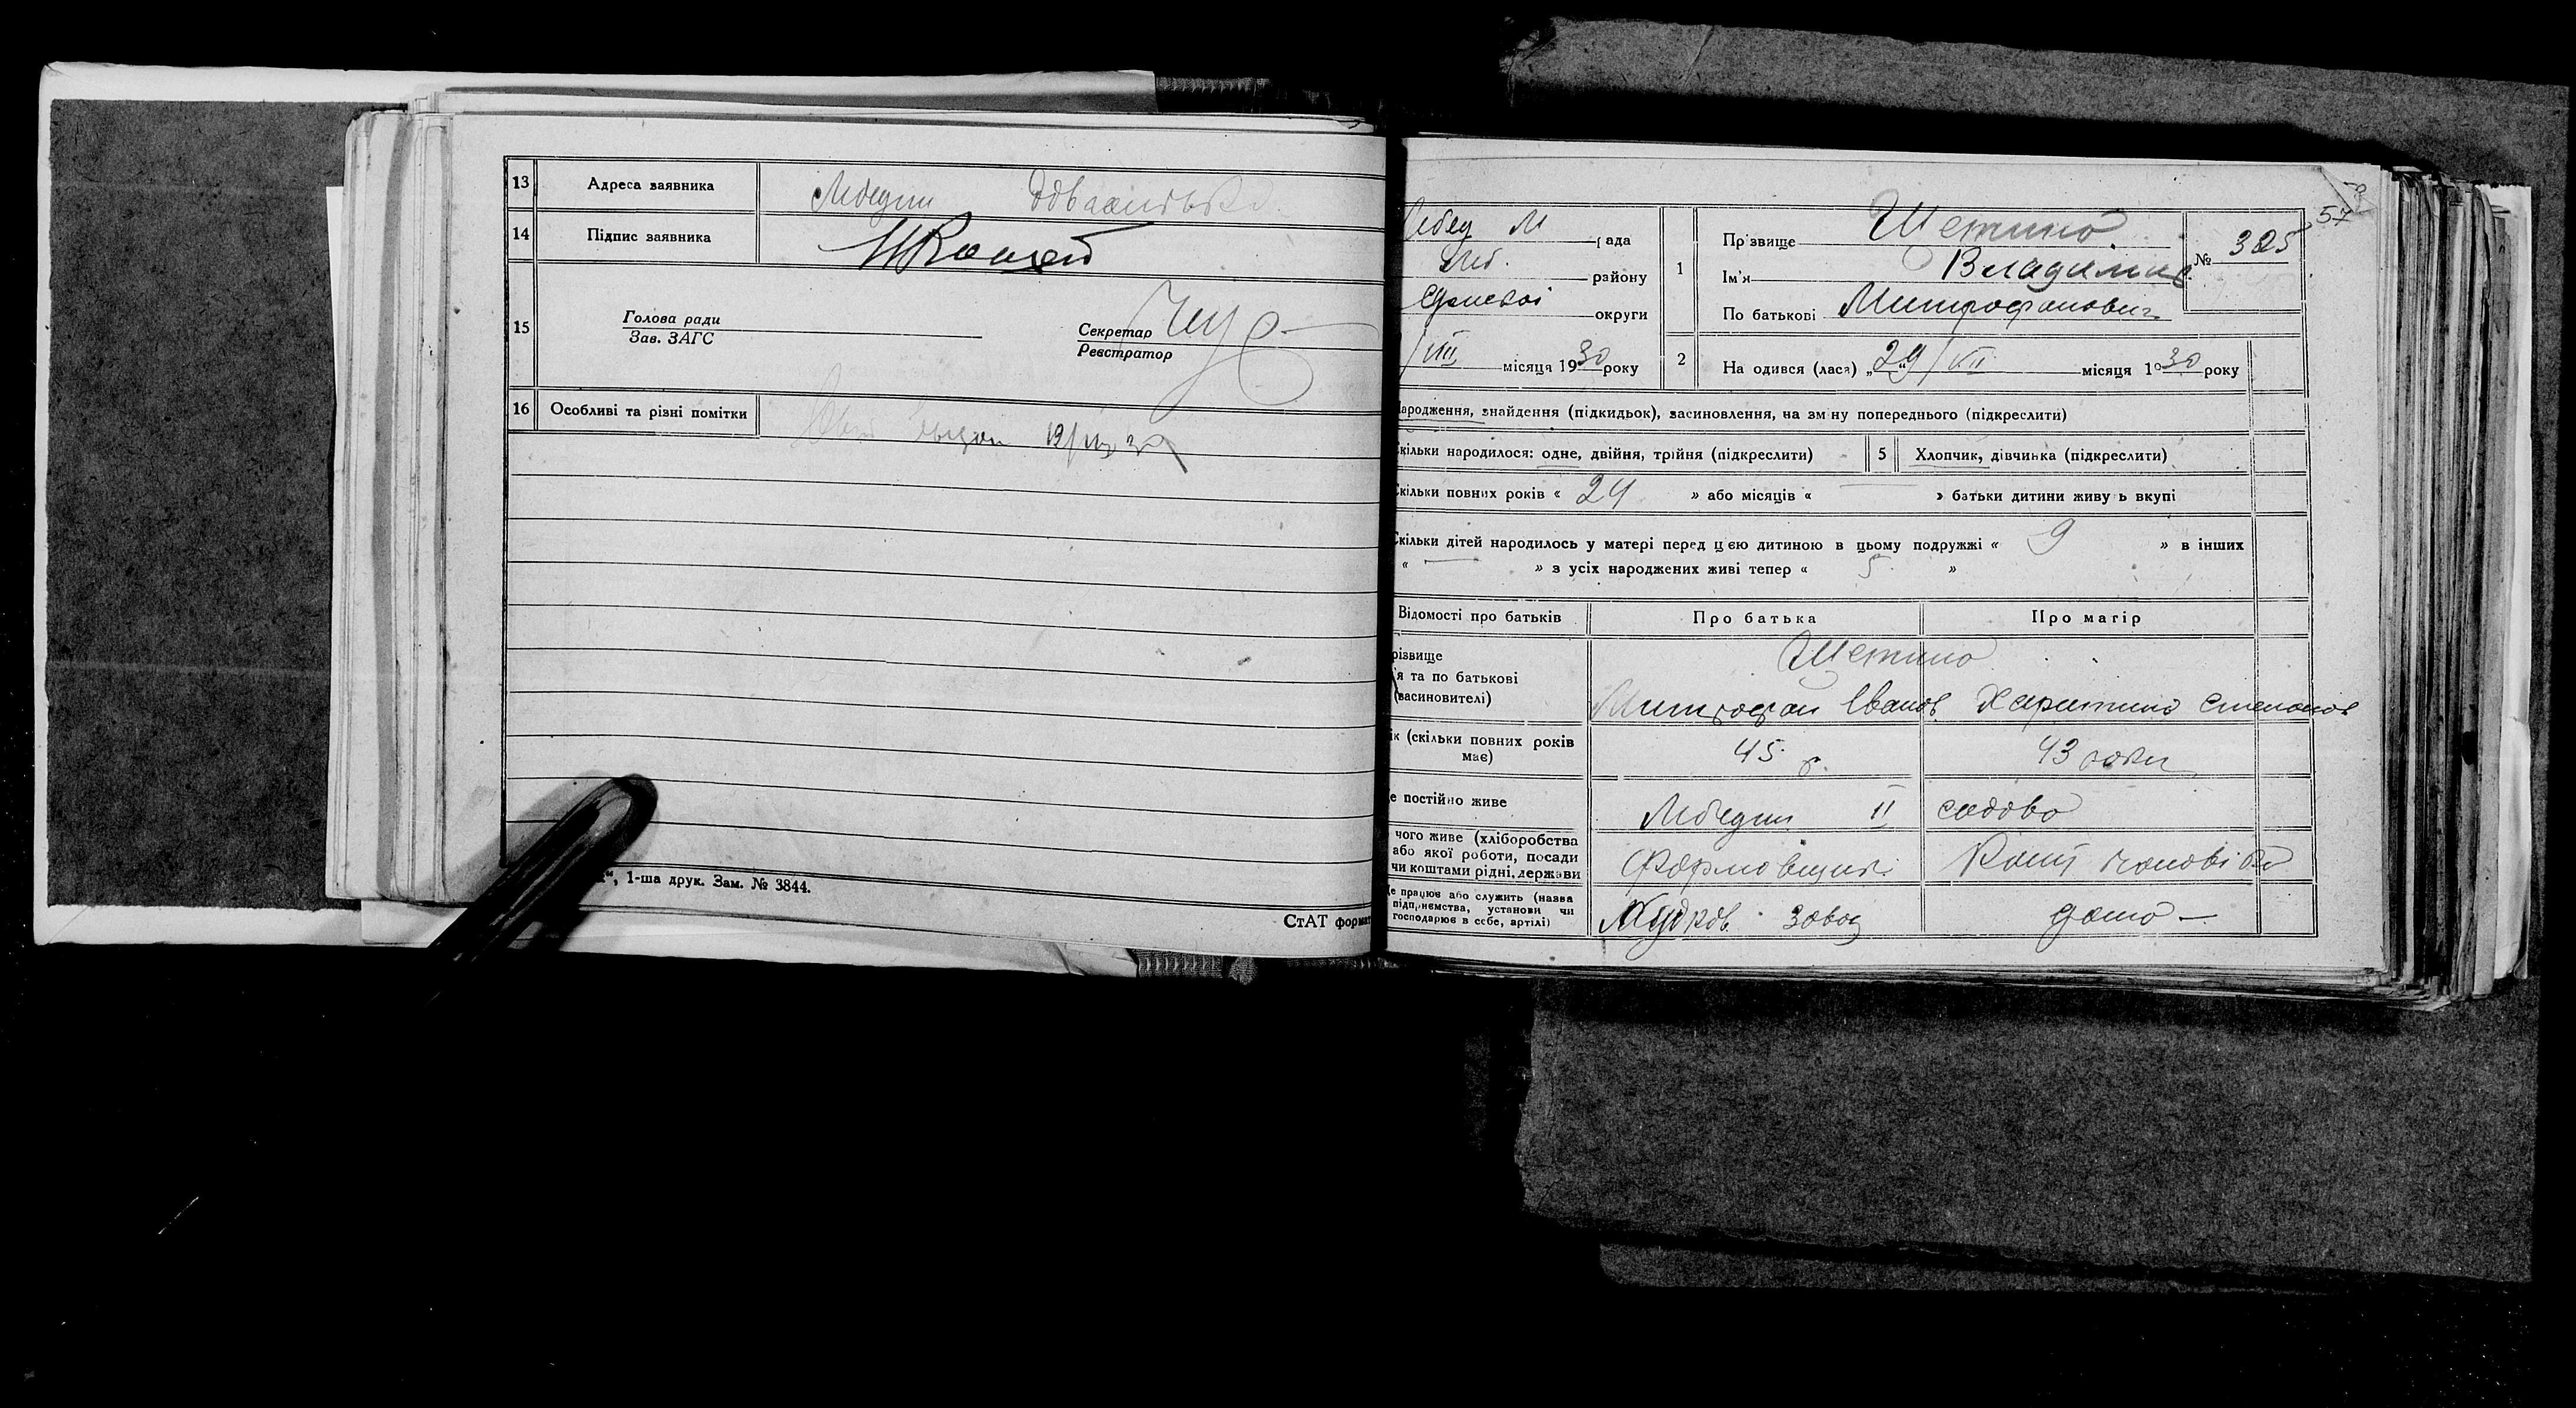 13 Адреса заявника Лебедин
14 Підпис заявника
15 Голова ради
Зав. ЗАГС
Секретар
Реєстратор
16 Особливі та різні помітки
1-ша друк. Зам. № 3844.
СтАТ формат
57
Лебед М рада
Леб. району
округи
/VIII місяця 1930 року
1 Пр звище
Ім'я Владимир
По батькові Митрофанович
№ 325
2 На одився (лася) „29/VII місяця 1930 року
ародження, знайдення (підкидьок), засиновлення, на зм ну попереднього (підкреслити)
кільки народилося: одне, двійня, трійня (підкреслити)
5 Хлопчик, дівчинка (підкреслити)
кільки повних років « 24 » або місяців « — » батьки дитини живу ь вкупі
Скільки дітей народилось у матері перед цією дитиною в цьому подружжі « 9 » в інших
« — » з усіх народжених живі тепер « 5 »
Відомості про батьків Про батька Про матір
різвище
я та по батькові
(засиновителі)
Митрофан Іванов Харитина Степанов
ік (скільки повних років
має)
45 р. 43 роки
е постійно живе Лебедин II садова
чого живе (хліборобства
або якої роботи, посади
чи коштами рідні, держави
Формовщик Кошт чоловіка
е працює або служить (назва
підприємства, установи чи
господарює в себе, артілі)
завод дома —